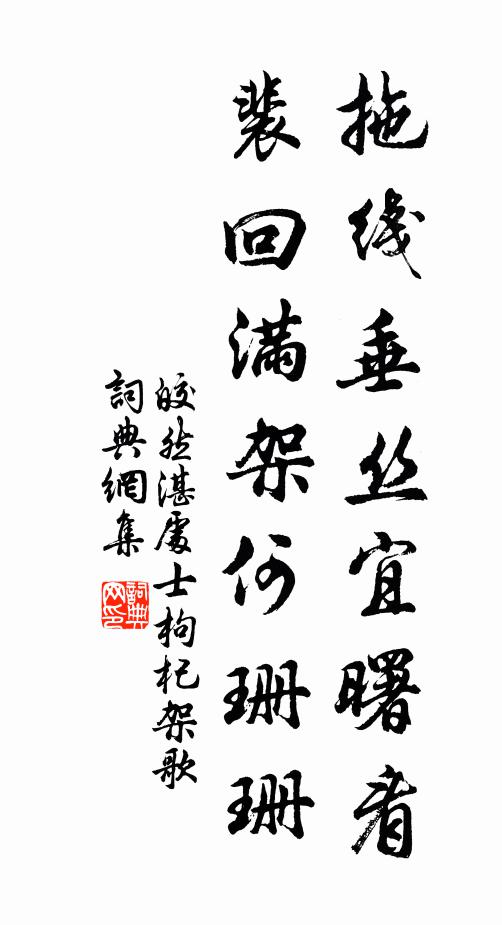 拖线垂丝宜曙看
裴回满架何珊珊
皎然湛處士枸杞架歌
詞典網集
詞典網印